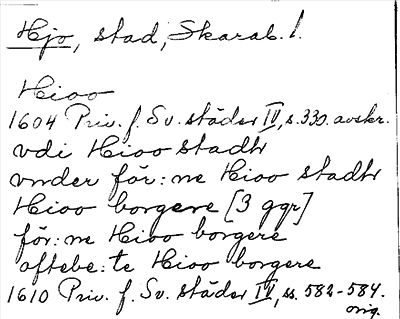 Hjo, stad, Skarab. l.
Hioo
1604 Priv. f. Sv. städer IV, s. 330. avskr.
vdi Hioo stadh
vnder för: ne Hioo stadh
Hioo borgere [3 ggr]
för: ne Hioo borgere
oftebe: te Hioo borgere
1610 Priv. f. Sv. städer IV, ss. 582-584.
orig.